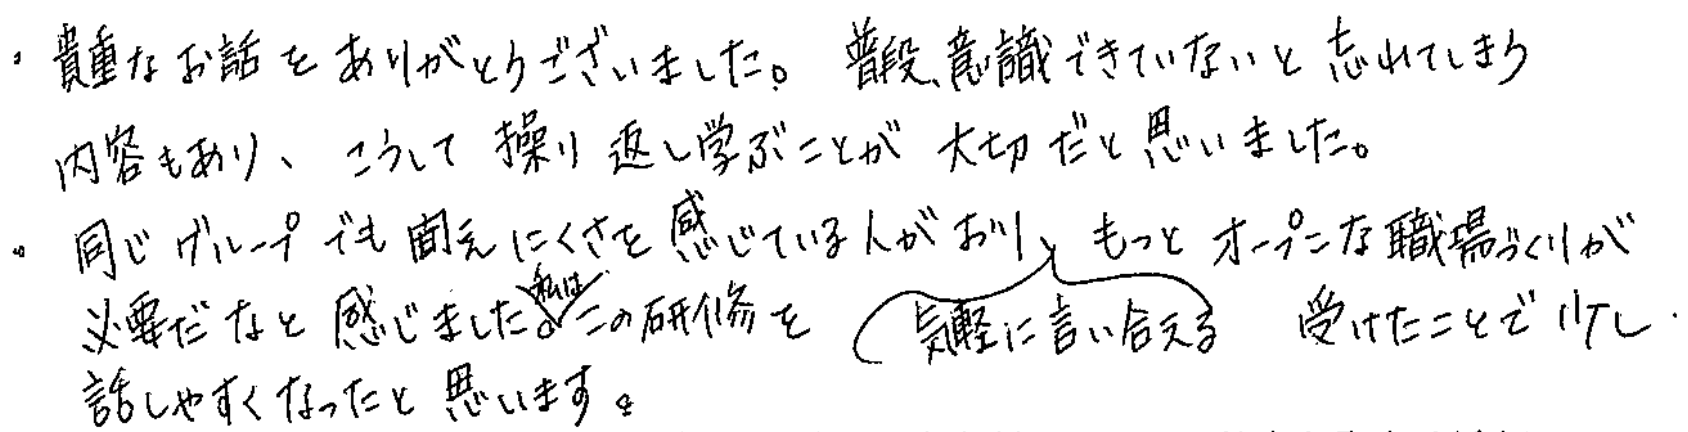 ・貴重なお話をありがとうございました。普段、意識できていないと忘れてしまう
内容もあり、こうして操り返し学ぶことが大切だと思いました。
・同じグループでも聞えにくさを感じている人がおり、もっとオープンな職場づくりが
必要だなと感じました。私はこの研修を 気軽に言い合える 受けたことで少し
話しやすくなったと思います。